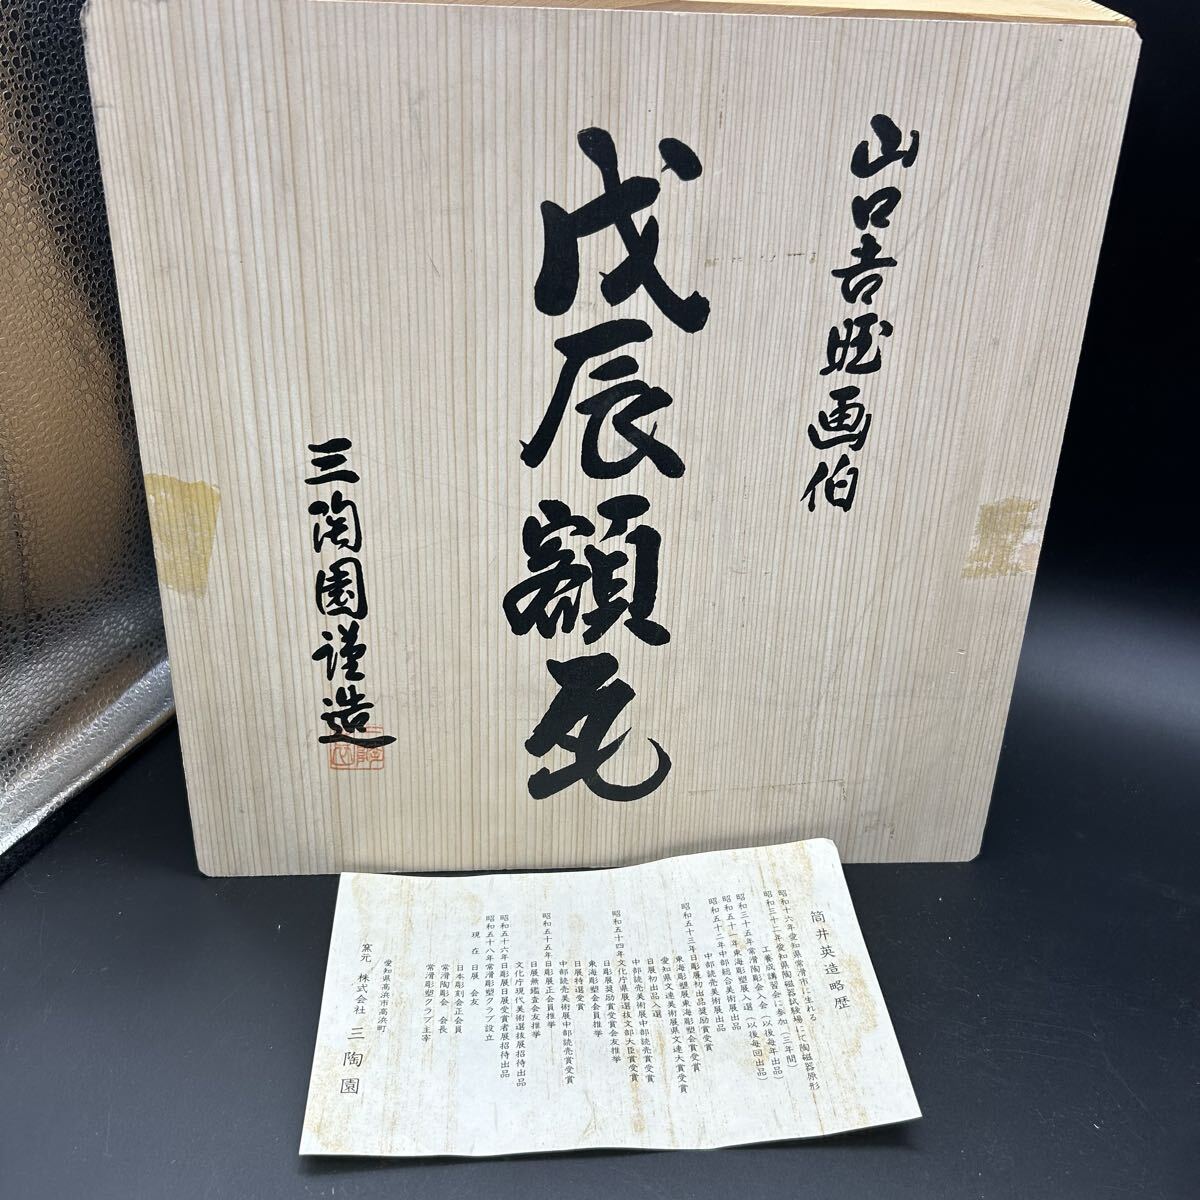 山口吉晄画伯
戊辰額瓦
三陶園謹造
筒井英造略歴
昭和十六年愛知県常滑市に生れる
昭和三十二年愛知県陶磁器試験場にて陶磁器原形
工養成講習会に参加(三年間)
昭和三十五年常滑陶彫会入会(以後毎年出品)
昭和五十一年東海彫塑展入選(以後毎回出品)
昭和五十二年中部総合美術展出品
中部読売美術展出品
昭和五十三年日彫展初出品奨励賞受賞
東海彫塑展東海彫塑会賞受賞
愛知県文連美術展県文連大賞受賞
日展初出品入選
中部読売美術展中部読売賞受賞
昭和五十四年文化庁県展選抜文部大臣賞受賞
日彫展奨励賞受賞会友推挙
東海彫塑会会員推挙
日展特選受賞
中部読売美術展中部読売賞受賞
昭和五十五年日彫展正会員推挙
日展無鑑査会友推挙
文化庁現代美術選抜展招待出品
昭和五十六年日彫展日展受賞者展招待出品
昭和五十八年常滑彫塑クラブ設立
現在 日展 会友
日本彫刻会正会員
常滑陶彫会 会長
常滑彫塑クラブ主宰
愛知県高浜市高浜町
窯元 株式会社 三陶園